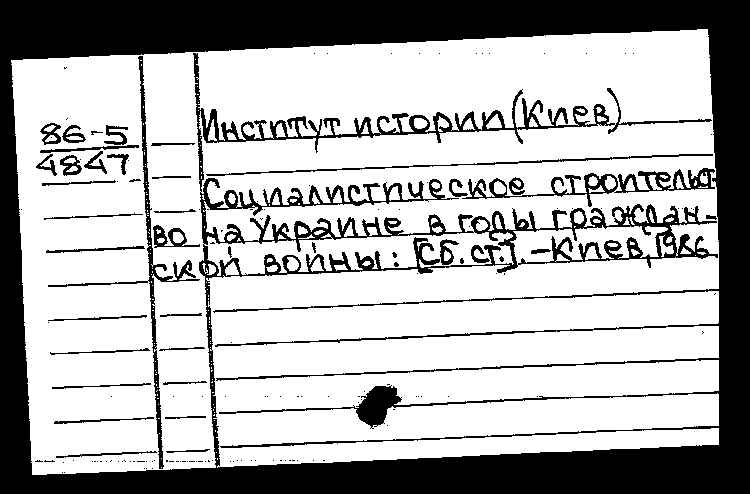 86-5
4847
Институт истории (Киев)
Социалистическое строительст-
во на Украине в годы граждан-
ской войны: [Сб. ст.]. - Киев, 1986